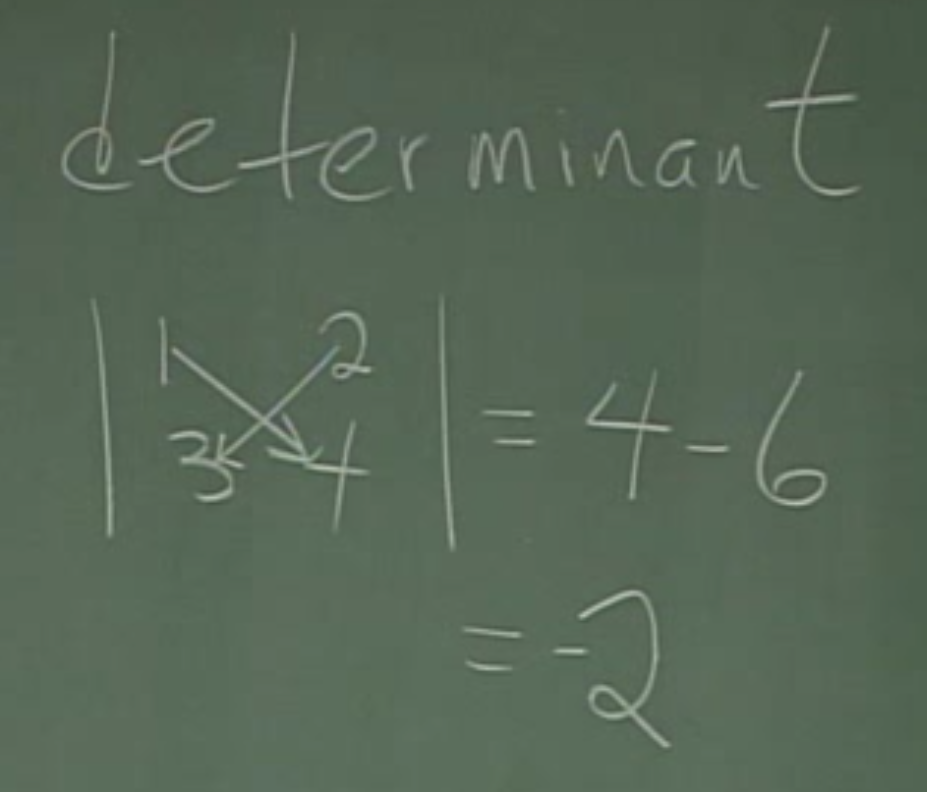 determinant
| 1 2 |
| 3 4 | = 4 - 6
= -2